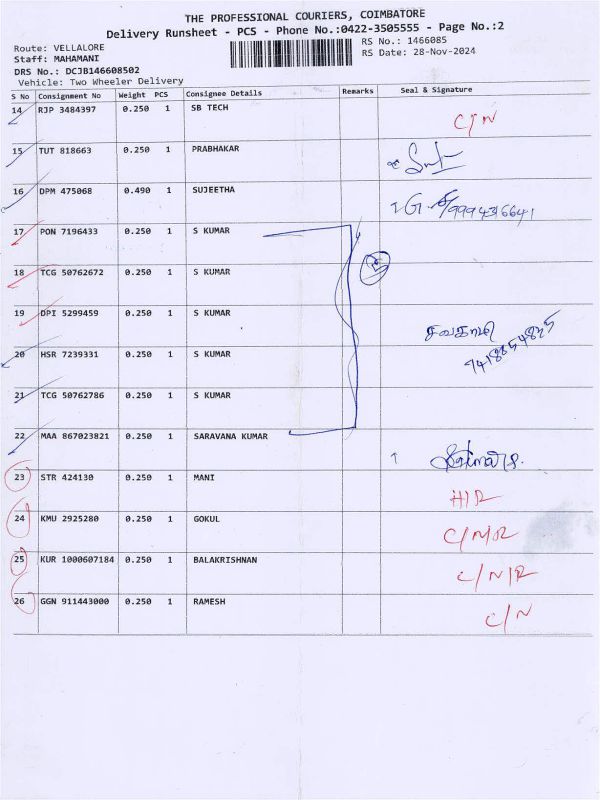 THE PROFESSIONAL COURIERS, COIMBATORE
Delivery Runsheet - PCS - Phone No.:0422-3505555 - Page No.:2
Route: VELLALORE
RS No.: 1466085
Staff: MAHAMANI
RS Date: 28-Nov-2024
DRS No.: DCJB146608502
Vehicle: Two Wheeler Delivery
S No Consignment No Weight PCS Consignee Details Remarks Seal & Signature
14 RJP 3484397 0.250 1 SB TECH C/N
15 TUT 818663 0.250 1 PRABHAKAR
16 DPM 475068 0.490 1 SUJEETHA 9994316641
17 PON 7196433 0.250 1 S KUMAR
18 TCG 50762672 0.250 1 S KUMAR
19 DPI 5299459 0.250 1 S KUMAR
20 HSR 7239331 0.250 1 S KUMAR
21 TCG 50762786 0.250 1 S KUMAR
22 MAA 867023821 0.250 1 SARAVANA KUMAR
23 STR 424130 0.250 1 MANI H/R
24 KMU 2925280 0.250 1 GOKUL C/N/R
25 KUR 1000607184 0.250 1 BALAKRISHNAN C/N/R
26 GGN 911443000 0.250 1 RAMESH C/N